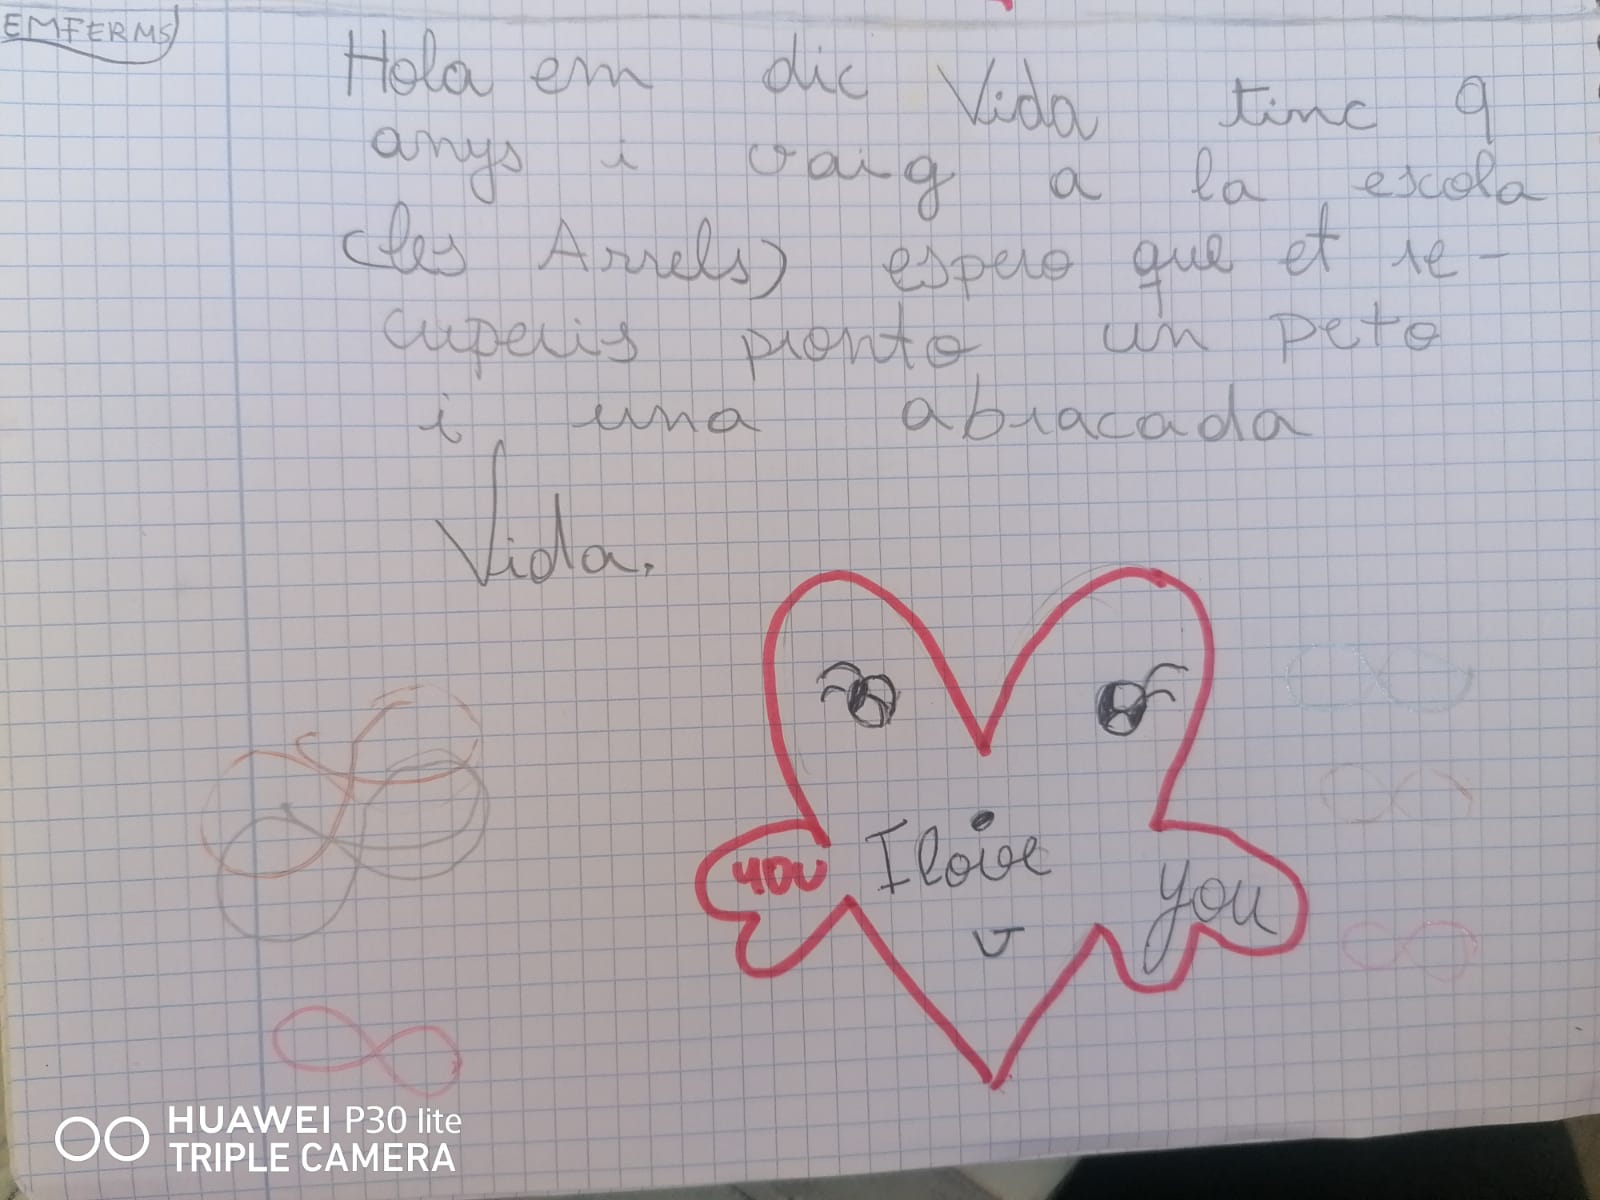 EMFERMS
Hola em dic Vida tinc 9
anys i vaig a la escola
(les Arrels) espero que et re-
cuperis pronto un peto
i una abracada
Vida.
I love
you
you
HUAWEI P30 lite
TRIPLE CAMERA